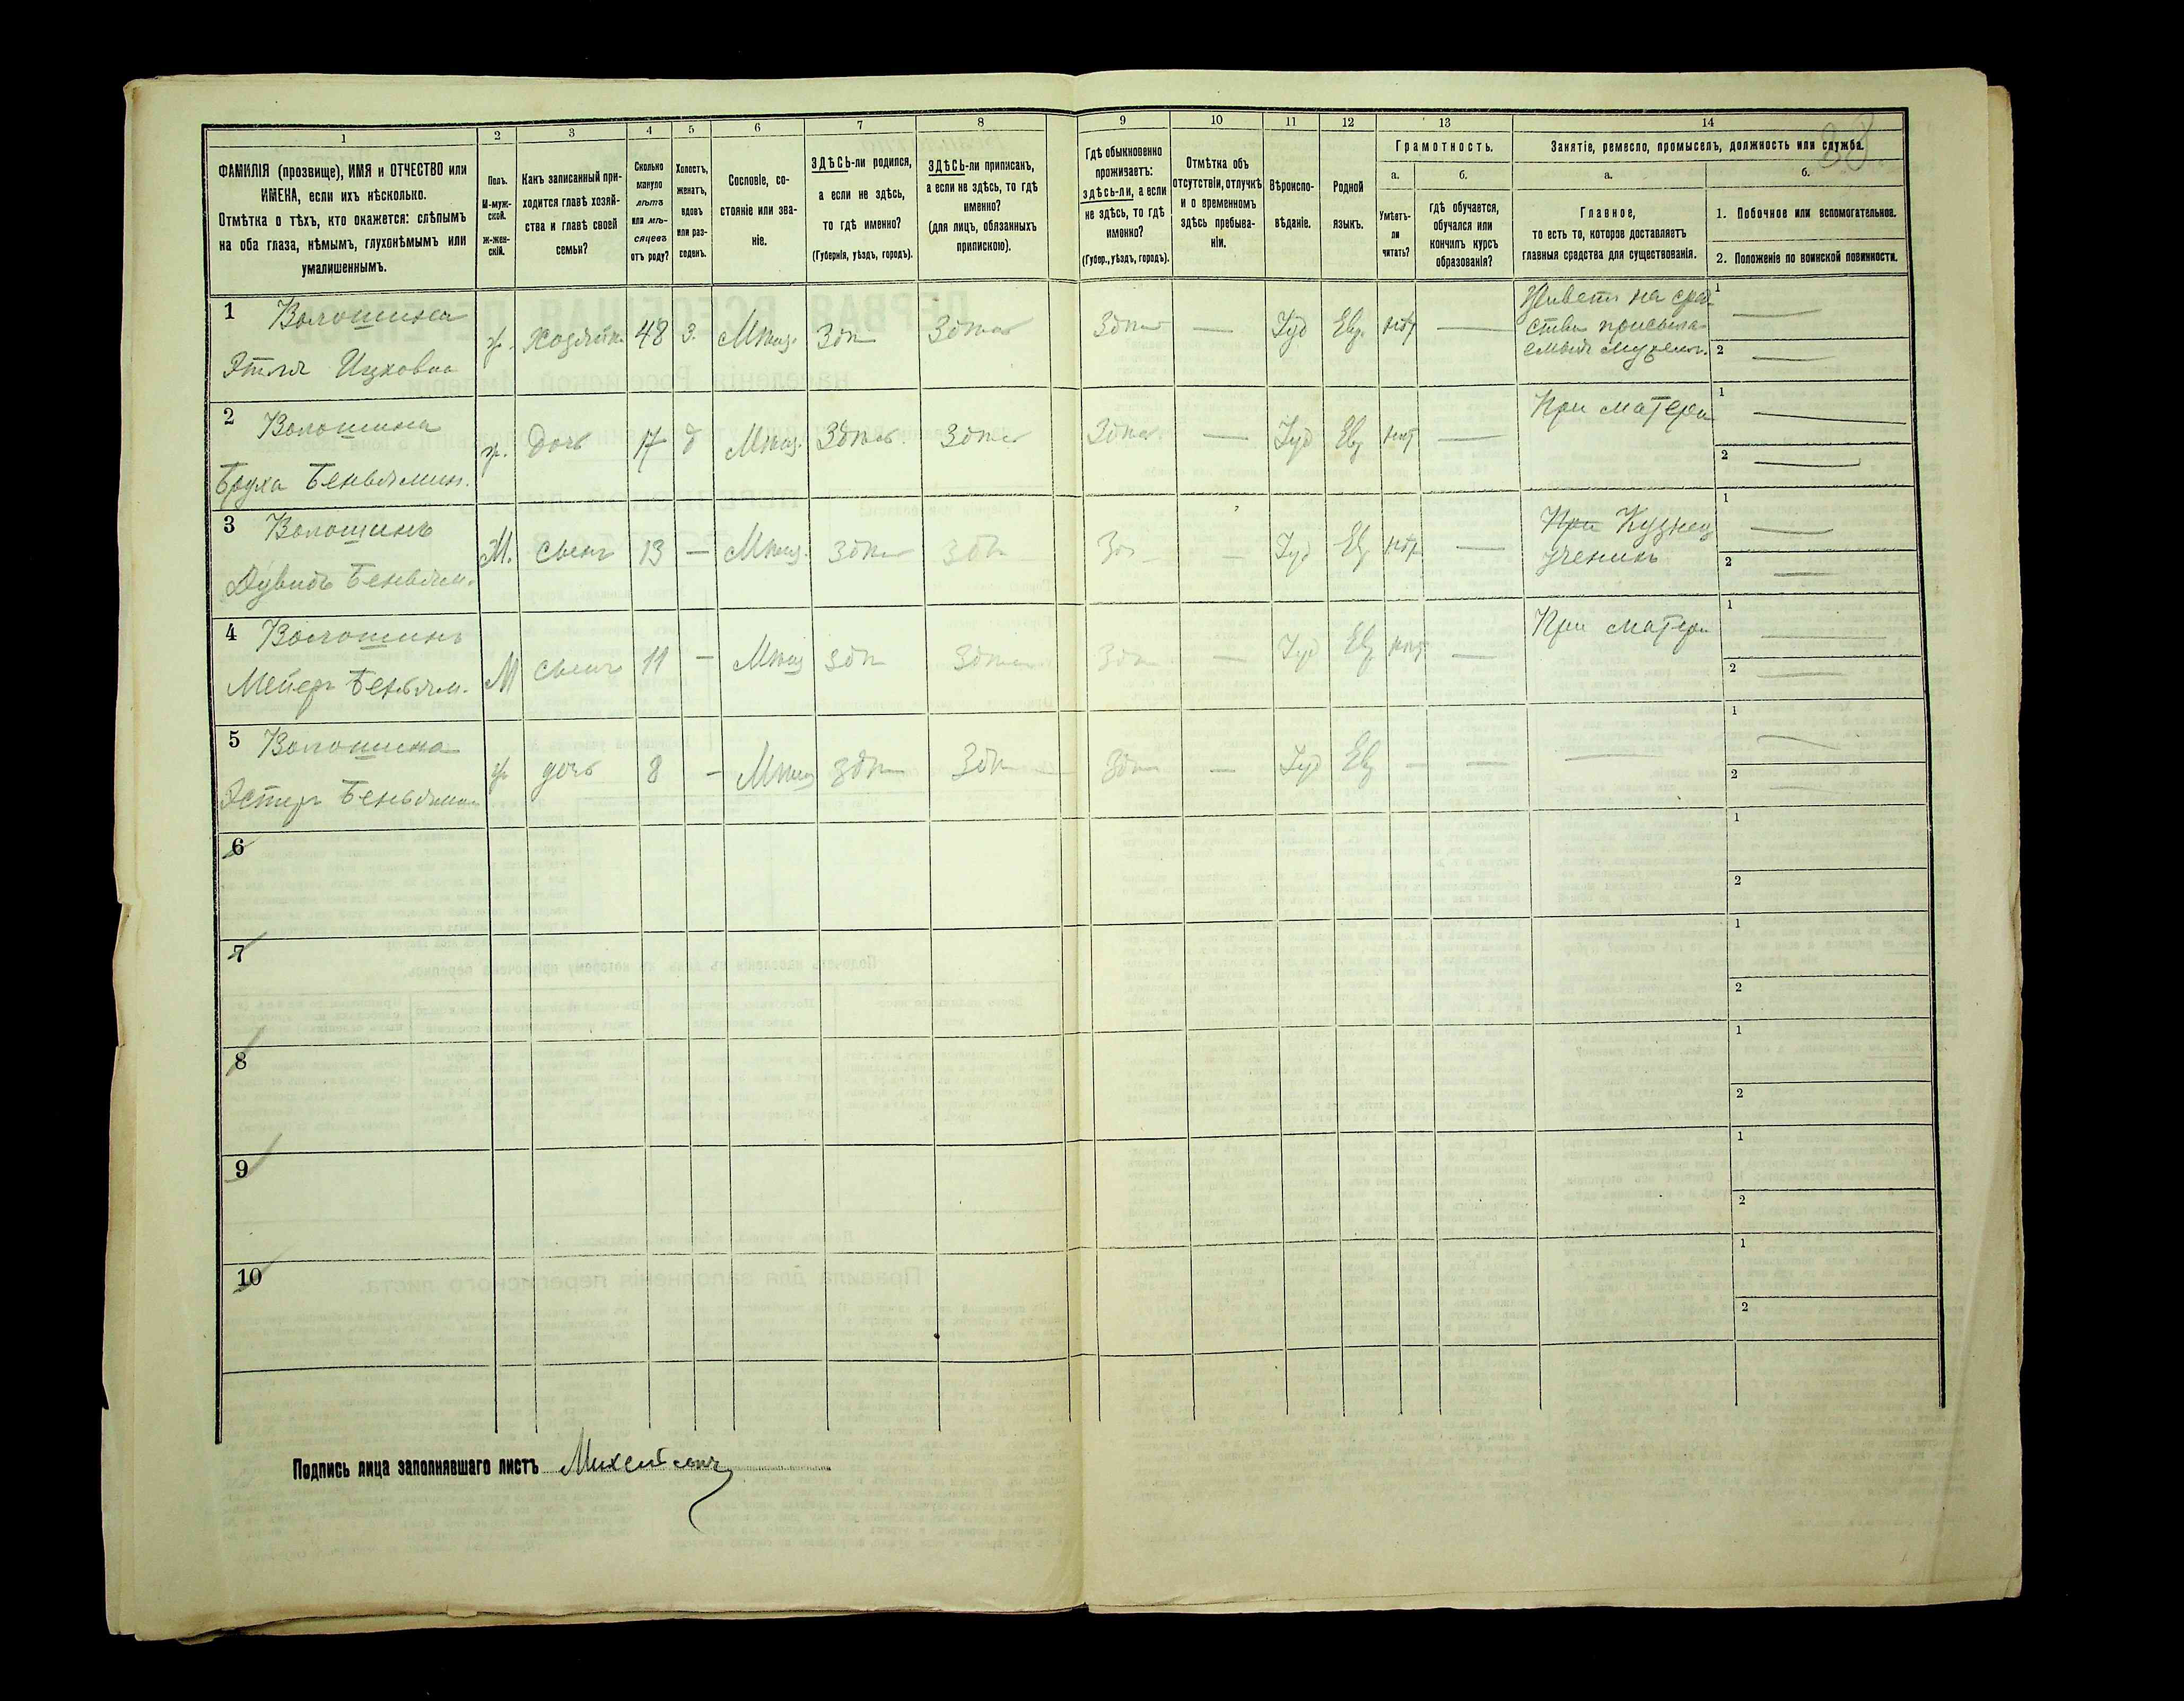 1
ФАМИЛІЯ (прозвище), ИМЯ и ОТЧЕСТВО или
ИМЕНА, если ихъ нѣсколько.
Отмѣтка о тѣхъ, кто окажется: слѣпымъ
на оба глаза, нѣмымъ, глухонѣмымъ или
умалишеннымъ.
2
Полъ.
М-муж-
ской.
ж-жен-
скій.
3
Какъ записанный при-
ходится главѣ хозяй-
ства и главѣ своей
семьи?
4
Сколько
минуло
лѣтъ
или мѣ-
сяцевъ
отъ роду?
5
Холостъ,
женатъ,
вдовъ
или раз-
веденъ.
6
Сословіе, со-
стояніе или зва-
ніе.
7
ЗДѢСЬ-ли родился,
а если не здѣсь,
то гдѣ именно?
(Губернія, уѣздъ, городъ).
8
ЗДѢСЬ-ли приписанъ,
а если не здѣсь, то гдѣ
именно?
(для лицъ, обязанныхъ
припискою).
9
Гдѣ обыкновенно
проживаетъ:
здѣсь-ли, а если
не здѣсь, то гдѣ
именно?
(Губер., уѣздъ, городъ).
10
Отмѣтка объ
отсутствіи, отлучкѣ
и о временномъ
здѣсь пребыва-
ніи.
11
Вѣроиспо-
вѣданіе.
12
Родной
языкъ.
13
Грамотность.
а.
Умѣетъ-
ли
читать?
б.
гдѣ обучается,
обучался или
кончилъ курсъ
образованія?
14
Занятіе, ремесло, промыселъ, должность или служба.
а.
Главное,
то есть то, которое доставляетъ
главныя средства для существованія.
б.
1. Побочное или вспомогательное.
2. Положеніе по воинской повинности.
1 Волошина
Этля Ицковна
ж. хозяйк. 48 З. Мѣщ. Здѣ Здѣсь Здѣсь — Іуд Евр. нѣт —
Живетъ на сред
ства присыла
емыя мужемъ.
1 —
2 —
2 Волошина
Бруха Беньямин.
ж. дочь 17 д Мѣщ. Здѣсь Здѣсь Здѣсь — Іуд Евр нѣт —
При матери
1 —
2 —
3 Волошинъ
Дувидъ Беньям.
М. сынъ 13 — Мѣщ. Здѣсь Здѣ Зд — Іуд Евр нѣт —
При Кузнец
ученикъ
1 —
2 —
4 Волошинъ
Мейеръ Беньям.
М сынъ 11 — Мѣщ Здѣ Здѣсь Здѣ — Іуд Евр нѣт —
При матери
1 —
2 —
5 Волошина
Эстеръ Беньямин
ж дочь 8 — Мѣщ Здѣ Здѣ Здѣ — Іуд Евр — — —
1 —
2 —
6
1
2
7
1
2
8
1
2
9
1
2
10
1
2
Подпись лица заполнявшаго листъ